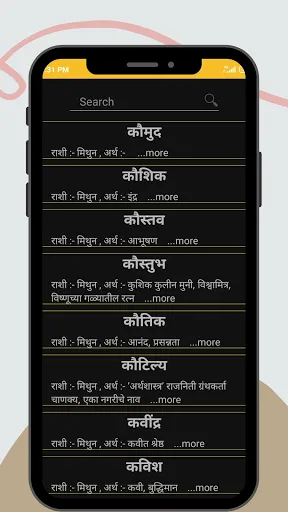 :31 PM
Search
कौमुद
राशी :- मिथुन , अर्थ :- ...more
कौशिक
राशी :- मिथुन , अर्थ :- इंद्र ...more
कौस्तव
राशी :- मिथुन , अर्थ :- आभूषण ...more
कौस्तुभ
राशी :- मिथुन , अर्थ :- कुशिक कुलीन मुनी, विश्वामित्र,
विष्णूच्या गळ्यातील रत्न ...more
कौतिक
राशी :- मिथुन , अर्थ :- आनंद, प्रसन्नता ...more
कौटिल्य
राशी :- मिथुन , अर्थ :- 'अर्थशास्त्र' राजनिती ग्रंथकर्ता
चाणक्य, एका नगरीचे नाव ...more
कवींद्र
राशी :- मिथुन , अर्थ :- कवीत श्रेष्ठ ...more
कविश
राशी :- मिथुन , अर्थ :- कवी, बुद्धिमान ...more